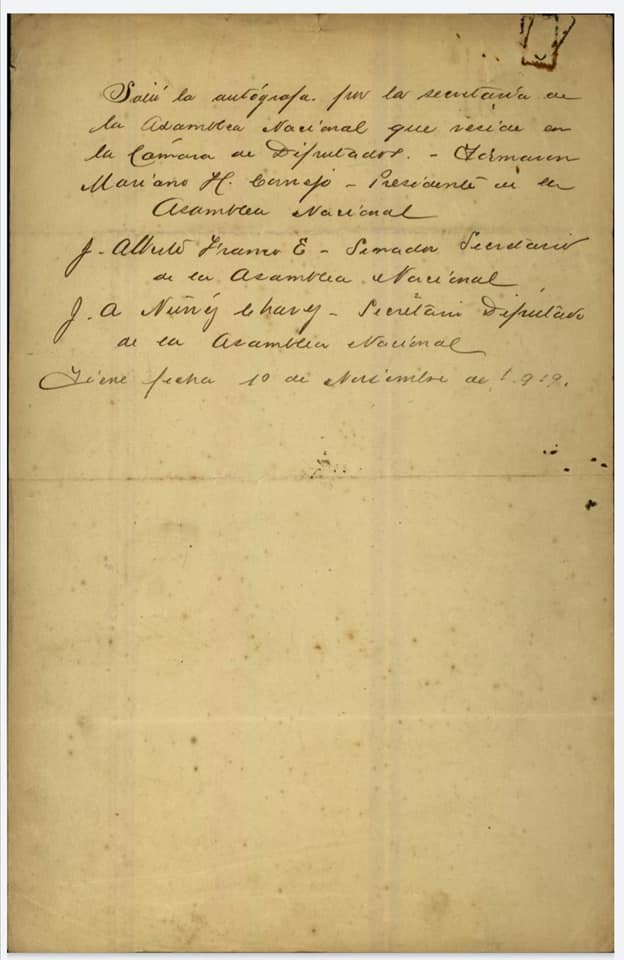 Salió la autógrafa por la secretaría de
la Asamblea Nacional que reside en
la Cámara de Diputados. - Firmaron
Mariano H. Cornejo - Presidente de la
Asamblea Nacional
J. Alberto Franco E - Senador Secretario
de la Asamblea Nacional
J. A Núñez Chavez - Secretario Diputado
de la Asamblea Nacional
Tiene fecha 10 de Noviembre de 1919.